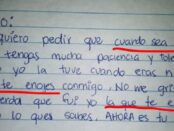 o:
quiero pedir que cuando sea
tengas mucha paciencia y
yo la tuve cuando eras n
te enojes conmigo. No me gri
erda que fui yo la que te e
lo que sabes. AHORA es tu